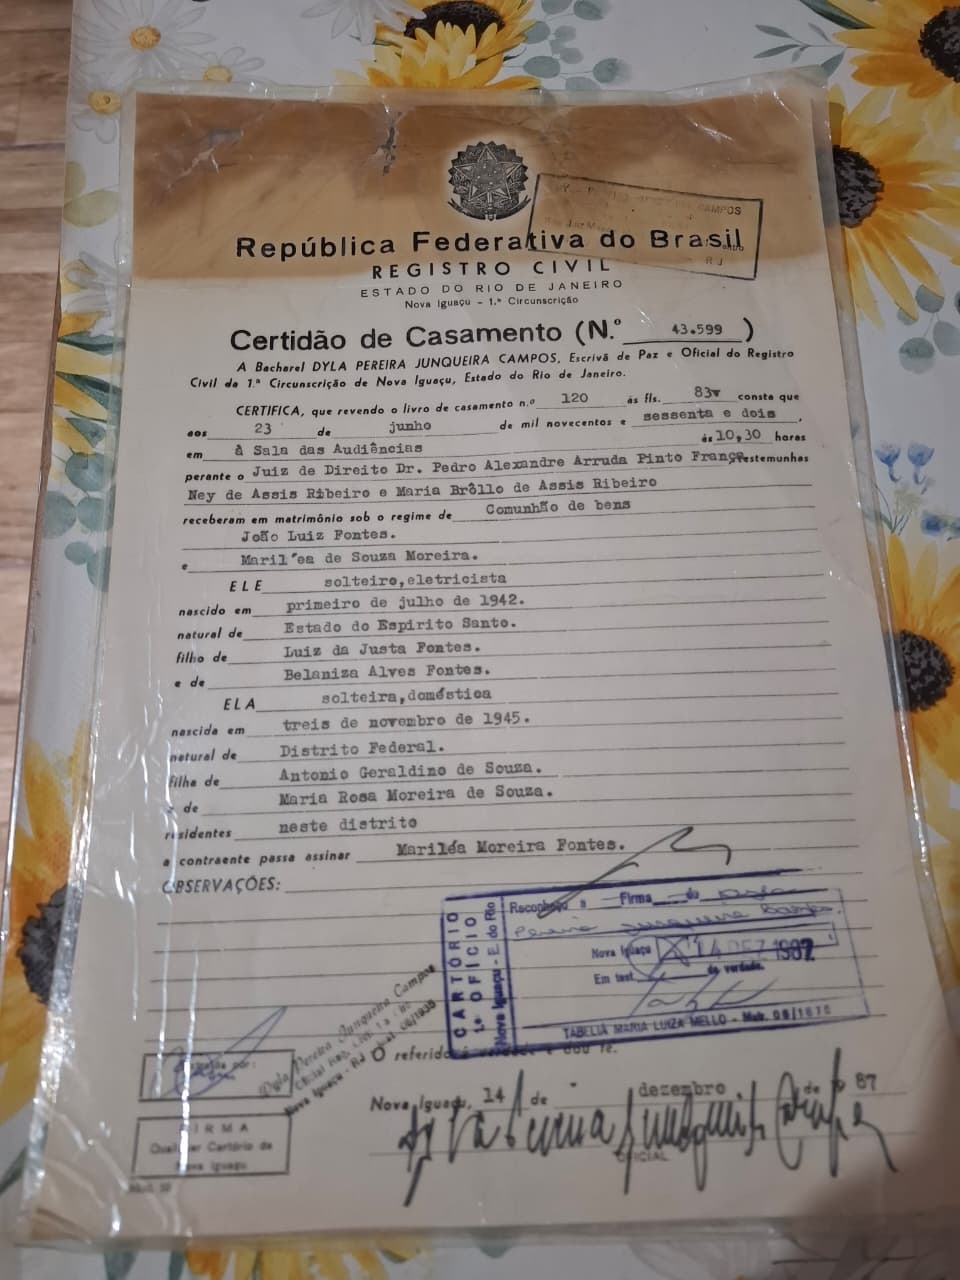 CAMPOS
RJ
República Federativa do Brasil
REGISTRO CIVIL
ESTADO DO RIO DE JANEIRO
Nova Iguaçu - 1.ª Circunscrição
Certidão de Casamento (N.º 43.599 )
A Bacharel DYLA PEREIRA JUNQUEIRA CAMPOS, Escrivã de Paz e Oficial do Registro
Civil da 1.ª Circunscrição de Nova Iguaçu, Estado do Rio de Janeiro.
CERTIFICA, que revendo o livro de casamento n.º 120 às fls. 83v consta que
aos 23 de junho de mil novecentos e sessenta e dois ,
em à Sala das Audiências às 10,30 horas
perante o Juiz de Direito Dr. Pedro Alexandre Arruda Pinto França, e testemunhas
Ney de Assis Ribeiro e Maria Brôllo de Assis Ribeiro
receberam em matrimônio sob o regime de Comunhão de bens
João Luiz Fontes.
e Maril'ea de Souza Moreira.
ELE solteiro,eletricista
nascido em primeiro de julho de 1942.
natural de Estado do Espirito Santo.
filho de Luiz da Justa Fontes.
e de Belaniza Alves Fontes.
ELA solteira,doméstica
nascida em treis de novembro de 1945.
natural de Distrito Federal.
filha de Antonio Geraldino de Souza.
e de Maria Rosa Moreira de Souza.
residentes neste distrito
a contraente passa assinar Mariléa Moreira Fontes.
OBSERVAÇÕES:
CARTÓRIO
1.º OFÍCIO
Nova Iguaçu - E. do Rio
Reconheço a Firma de Dyla
Pereira Junqueira Campos.
Nova Iguaçu 14 DEZ 1987
Em test. da verdade.
TABELIÃ MARIA LUIZA MELLO - Matr. 06/1670
Dyla Pereira Junqueira Campos
Nova Iguaçu - RJ
O referido é verdade e dou fé.
Nova Iguaçu, 14 de dezembro de 1987
Dyla Pereira Junqueira Campos
OFICIAL
FIRMA
Qualquer Cartório de
Nova Iguaçu